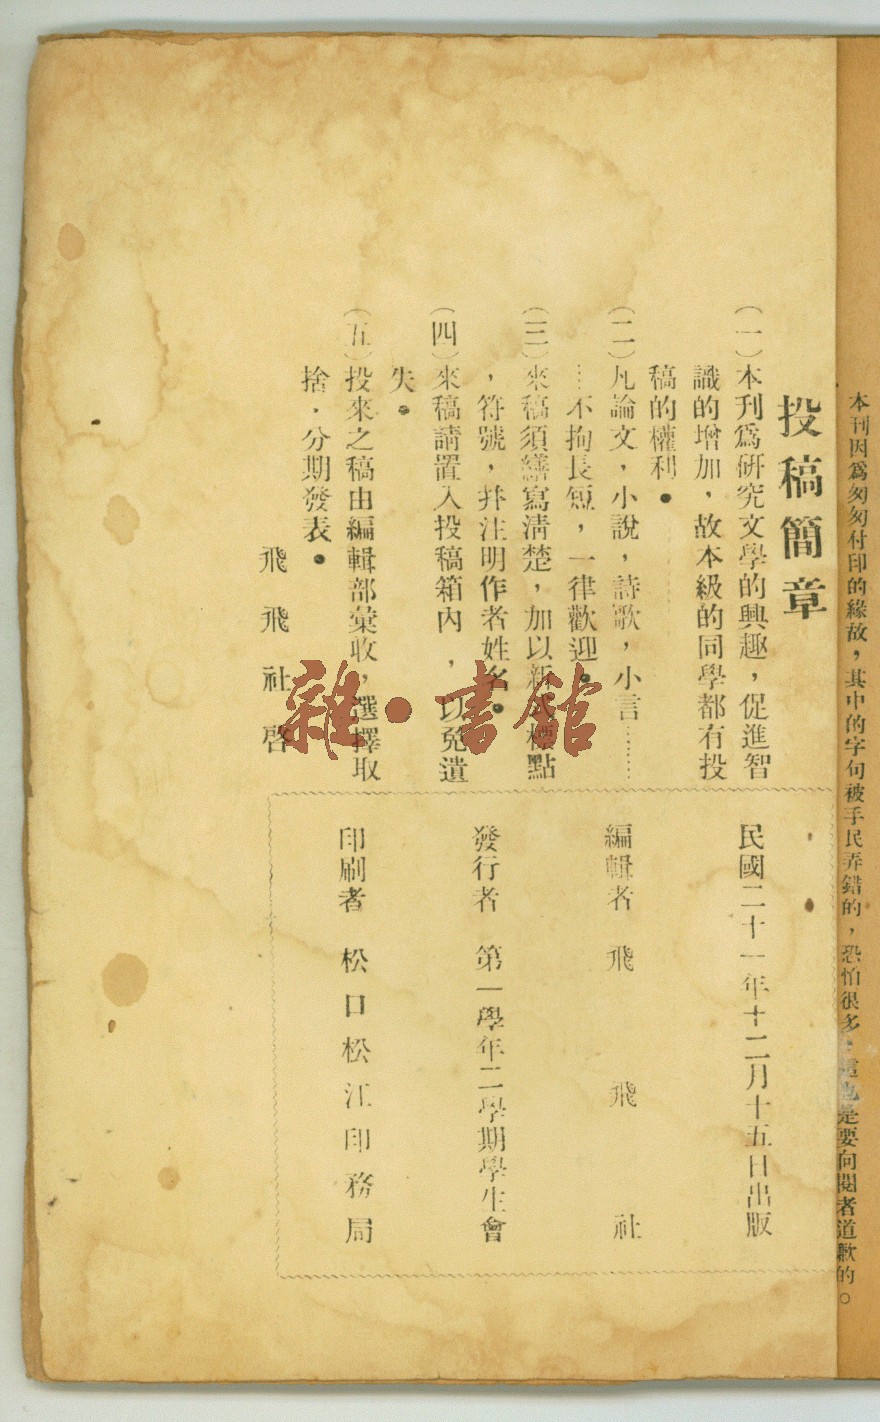 本刊因爲匆匆付印的緣故，其中的字句被手民弄錯的，恐怕很多；這也是要向閱者道歉的。
投稿簡章
（一）本刊爲研究文學的興趣，促進智
識的增加，故本級的同學都有投
稿的權利。
（二）凡論文，小說，詩歌，小言……
…不拘長短，一律歡迎。
（三）來稿須繕寫清楚，加以新式標點
，符號，幷注明作者姓名。
（四）來稿請置入投稿箱內，以免遺
失。
（五）投來之稿由編輯部彙收，選擇取
捨．分期發表。
飛飛社啓
民國二十一年十二月十五日出版
編輯者 飛飛社
發行者 第一學年二學期學生會
印刷者 松口松江印務局
雜·書館